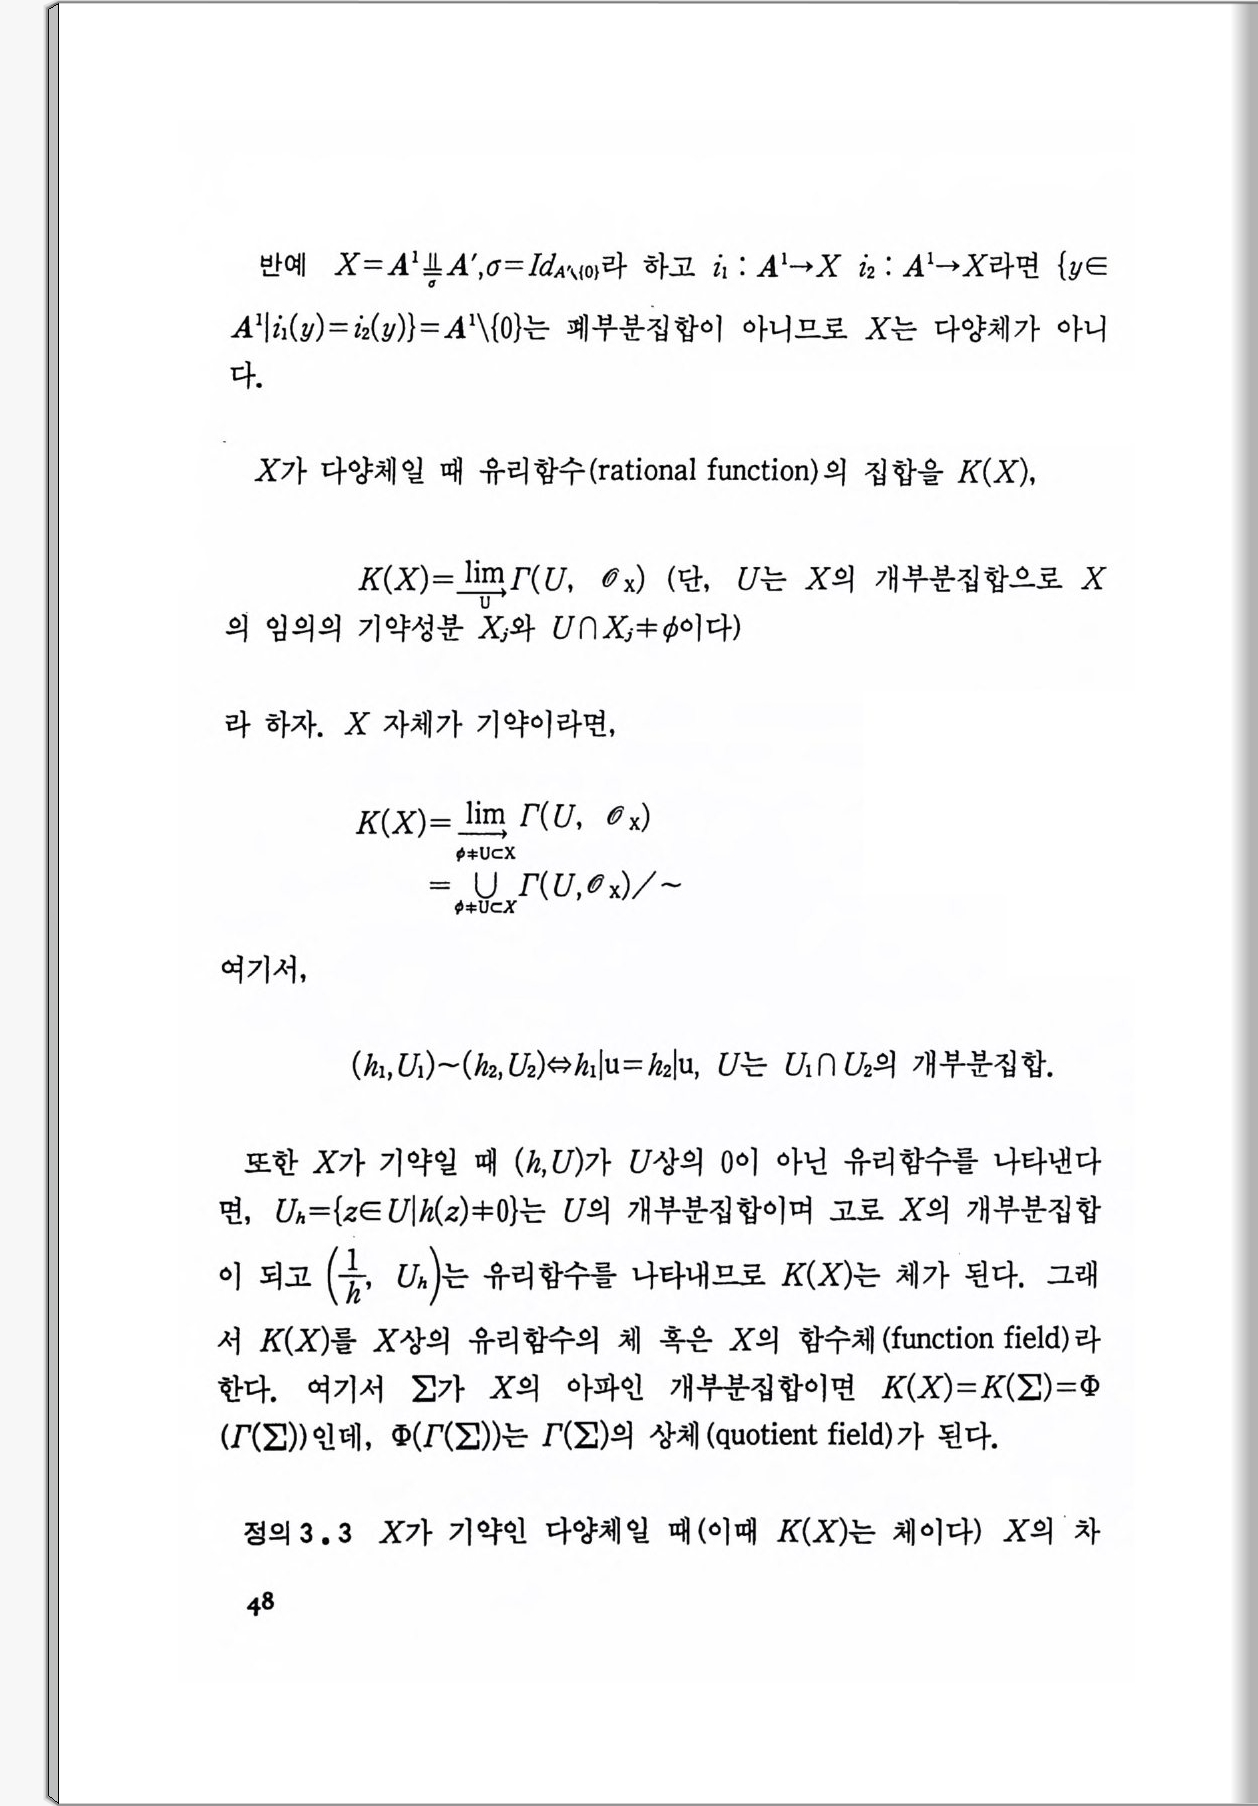 반예 X=A¹⨿A′,σ=Id_{A′\{0}}라 하고 i₁ : A¹→X i₂ : A¹→X라면 {y∈
σ
A¹|i₁(y)=i₂(y)}=A¹\{0}는 폐부분집합이 아니므로 X는 다양체가 아니
다.
X가 다양체일 때 유리함수(rational function)의 집합을 K(X),
K(X)=lim Γ(U, 𝒪x) (단, U는 X의 개부분집합으로 X
→
U
의 임의의 기약성분 Xⱼ와 U∩Xⱼ≠ϕ이다)
라 하자. X 자체가 기약이라면,
K(X)= lim Γ(U, 𝒪x)
→
ϕ≠U⊂X
= ∪ Γ(U,𝒪x)/∼
ϕ≠U⊂X
여기서,
(h₁,U₁)∼(h₂,U₂)⇔h₁|u=h₂|u, U는 U₁∩U₂의 개부분집합.
또한 X가 기약일 때 (h,U)가 U상의 0이 아닌 유리함수를 나타낸다
면, Uₕ={z∈U|h(z)≠0}는 U의 개부분집합이며 고로 X의 개부분집합
이 되고 (1/h, Uₕ)는 유리함수를 나타내므로 K(X)는 체가 된다. 그래
서 K(X)를 X상의 유리함수의 체 혹은 X의 함수체(function field)라
한다. 여기서 Σ가 X의 아파인 개부분집합이면 K(X)=K(Σ)=Φ
(Γ(Σ))인데, Φ(Γ(Σ))는 Γ(Σ)의 상체(quotient field)가 된다.
정의 3.3 X가 기약인 다양체일 때(이때 K(X)는 체이다) X의 차
48